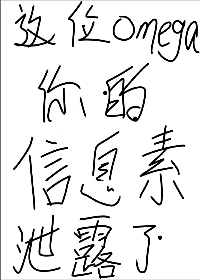 这位omega
你的
信息素
泄露了